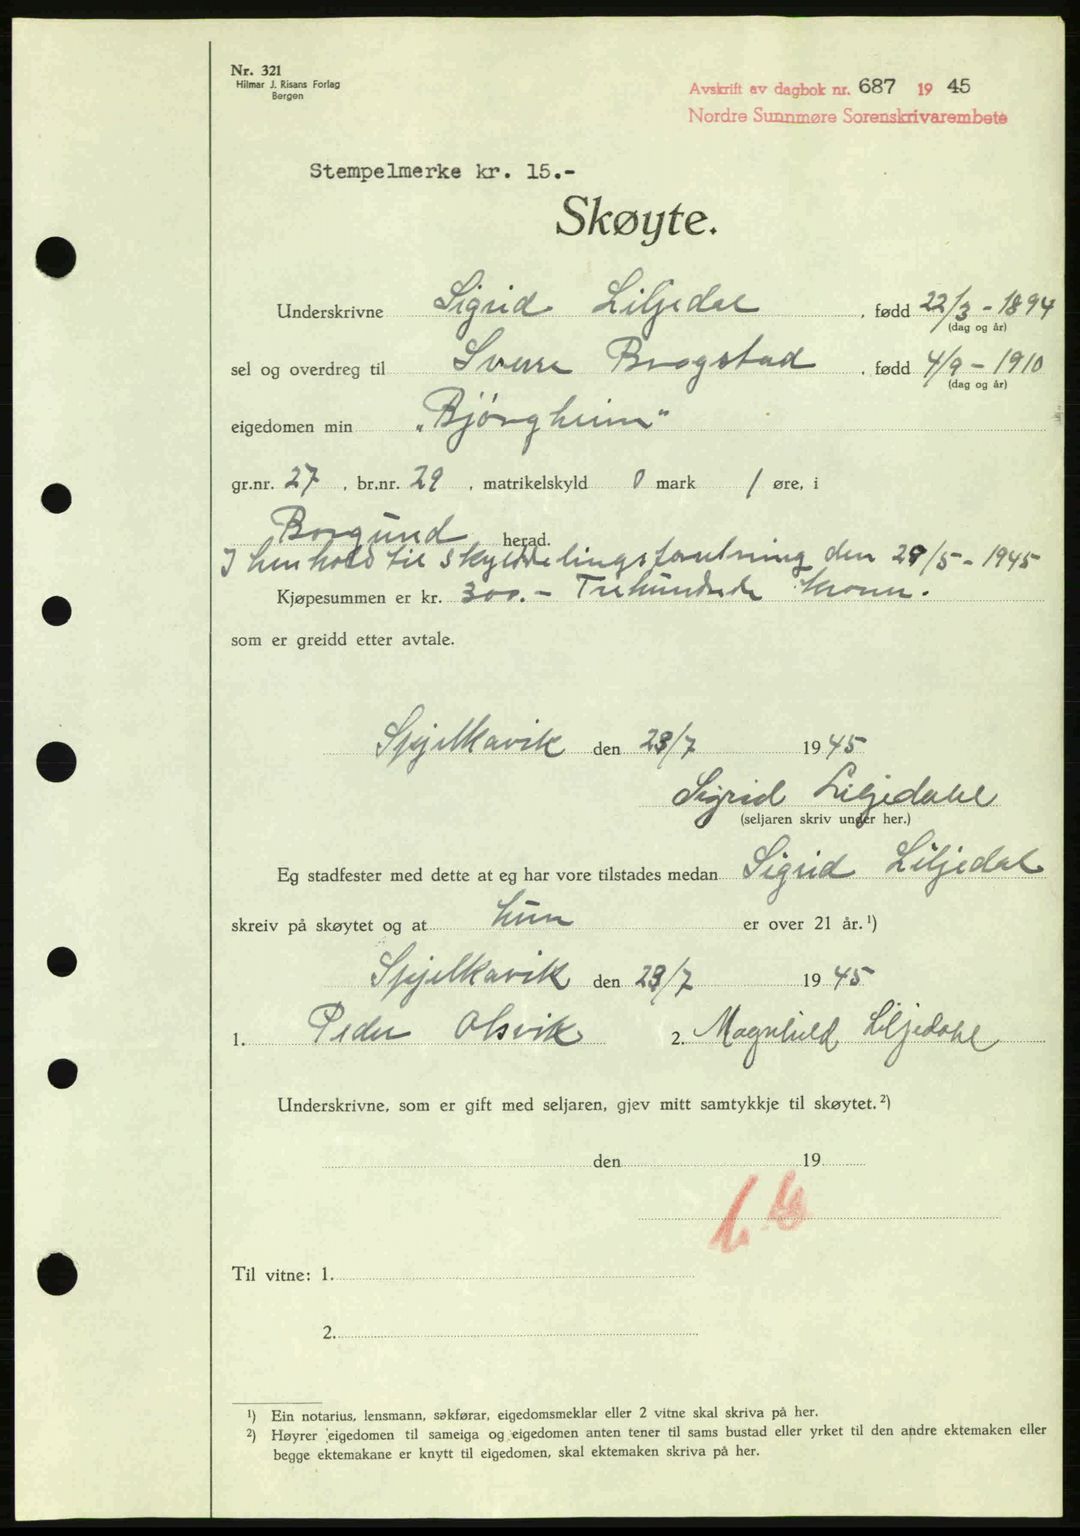 Nr. 321
Hilmar J. Risans Forlag
Bergen
Avskrift av dagbok nr. 687 19 45
Nordre Sunnmøre Sorenskrivarembete
Stempelmerke kr. 15.-
Skøyte.
Underskrivne Sigrid Liljedal, fødd 22/3 - 1894
(dag og år)
sel og overdreg til Sverre Brogstad, fødd 4/9 - 1910
(dag og år)
eigedomen min „Bjørgheim"
gr.nr. 27, br.nr. 29, matrikelskyld 0 mark 1 øre, i
Borgund herad.
I henhold til skylddelingsforretning den 29/5 - 1945
Kjøpesummen er kr. 300.- Trehundrede kroner.
som er greidd etter avtale.
Spjelkavik den 23/7 1945
Sigrid Liljedahl
(seljaren skriv under her.)
Eg stadfester med dette at eg har vore tilstades medan Sigrid Liljedal
skreiv på skøytet og at hun er over 21 år.¹)
Spjelkavik den 23/7 1945
1. Peder Olsvik 2. Magnhild Liljedahl
Underskrivne, som er gift med seljaren, gjev mitt samtykkje til skøytet.²)
den 19
Til vitne: 1.
2.
¹) Ein notarius, lensmann, sakførar, eigedomsmeklar eller 2 vitne skal skriva på her.
²) Høyrer eigedomen til sameiga og eigedomen anten tener til sams bustad eller yrket til den andre ektemaken eller
begge ektemakane er knytt til eigedomen, skal ektemaken skriva på her.